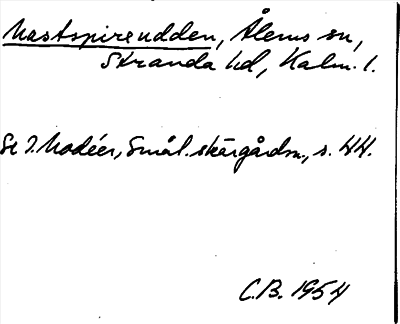 Mastspireudden, Ålems sn,
Stranda hd, Kalm. l.
Se I. Modéer, Smål. skärgårdsn., s. 44.
C.B. 1954